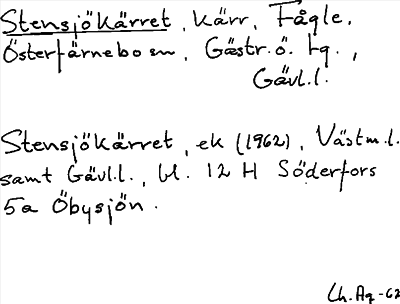 Stensjökärret, kärr, Fågle,
Österfärnebo sn, Gästr.ö. tg.,
Gävl.l.
Stensjökärret, ek (1962), Västm.l.
samt Gävl.l., bl. 12 H Söderfors
5a Öbysjön.
Ch. Ag -62